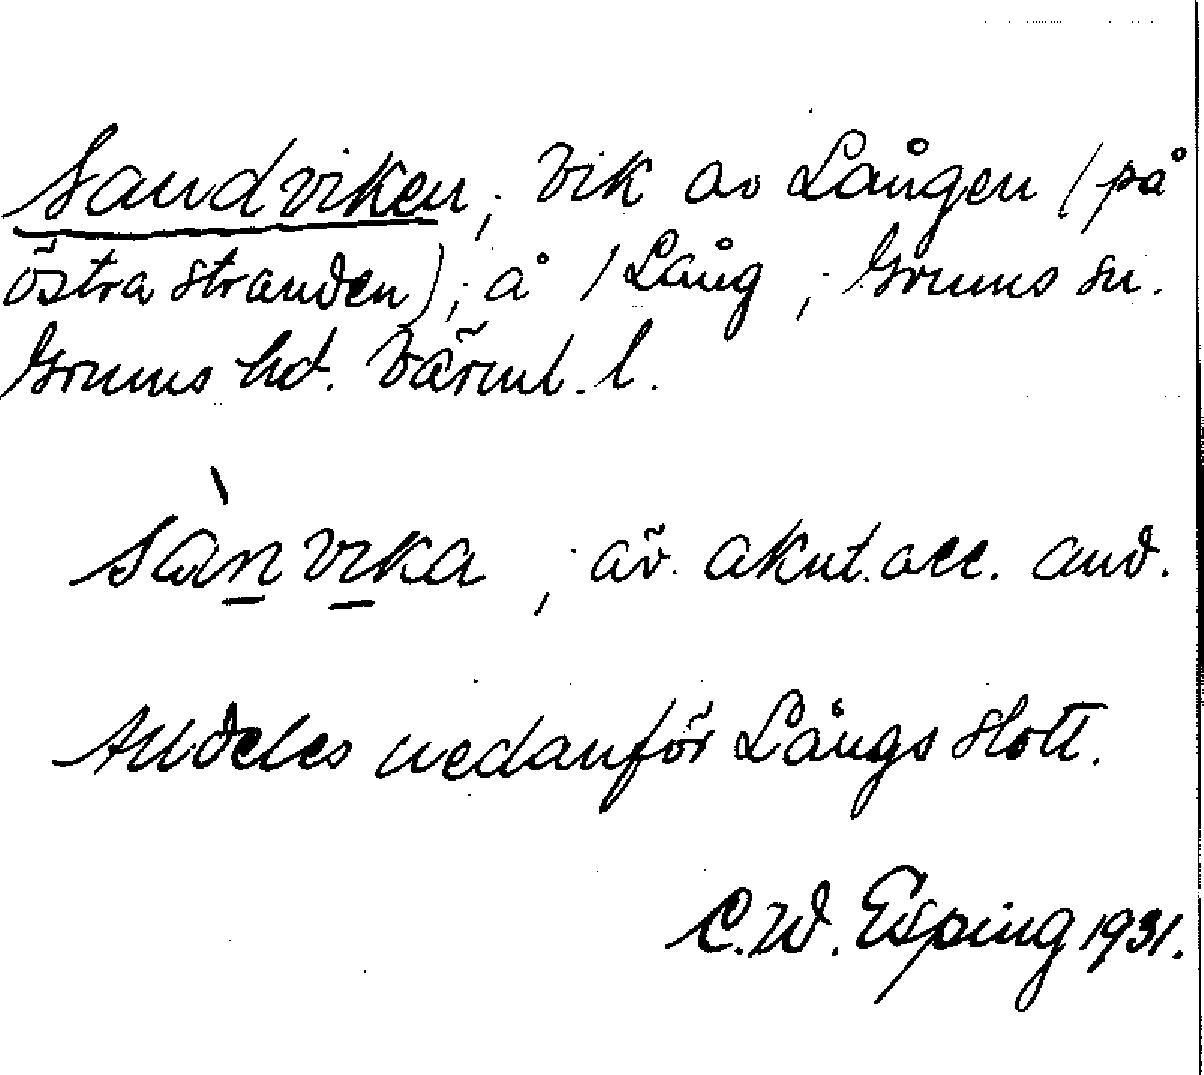 Sandviken, vik av Lången (på
östra stranden), å /Lång, Grums sn.
Grums hd. Värml. l.
sànvika, äv. akut. acc. anv.
Alldeles nedanför Långs slott.
C.W. Esping 1931.